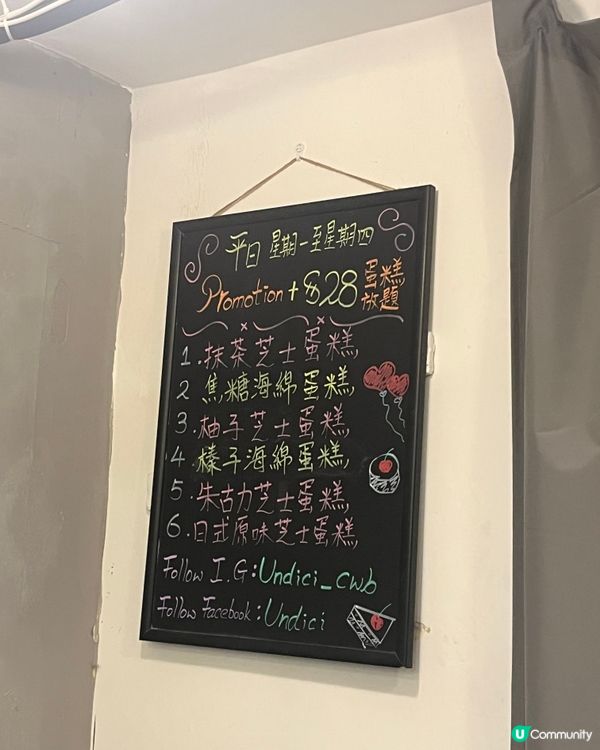 平日 星期一至星期四
Promotion + $28 蛋糕放題
1. 抹茶芝士蛋糕
2 焦糖海綿蛋糕
3. 柚子芝士蛋糕
4. 榛子海綿蛋糕
5. 朱古力芝士蛋糕
6. 日式原味芝士蛋糕
Follow I.G: Undici_cwb
Follow Facebook: Undici
U Community